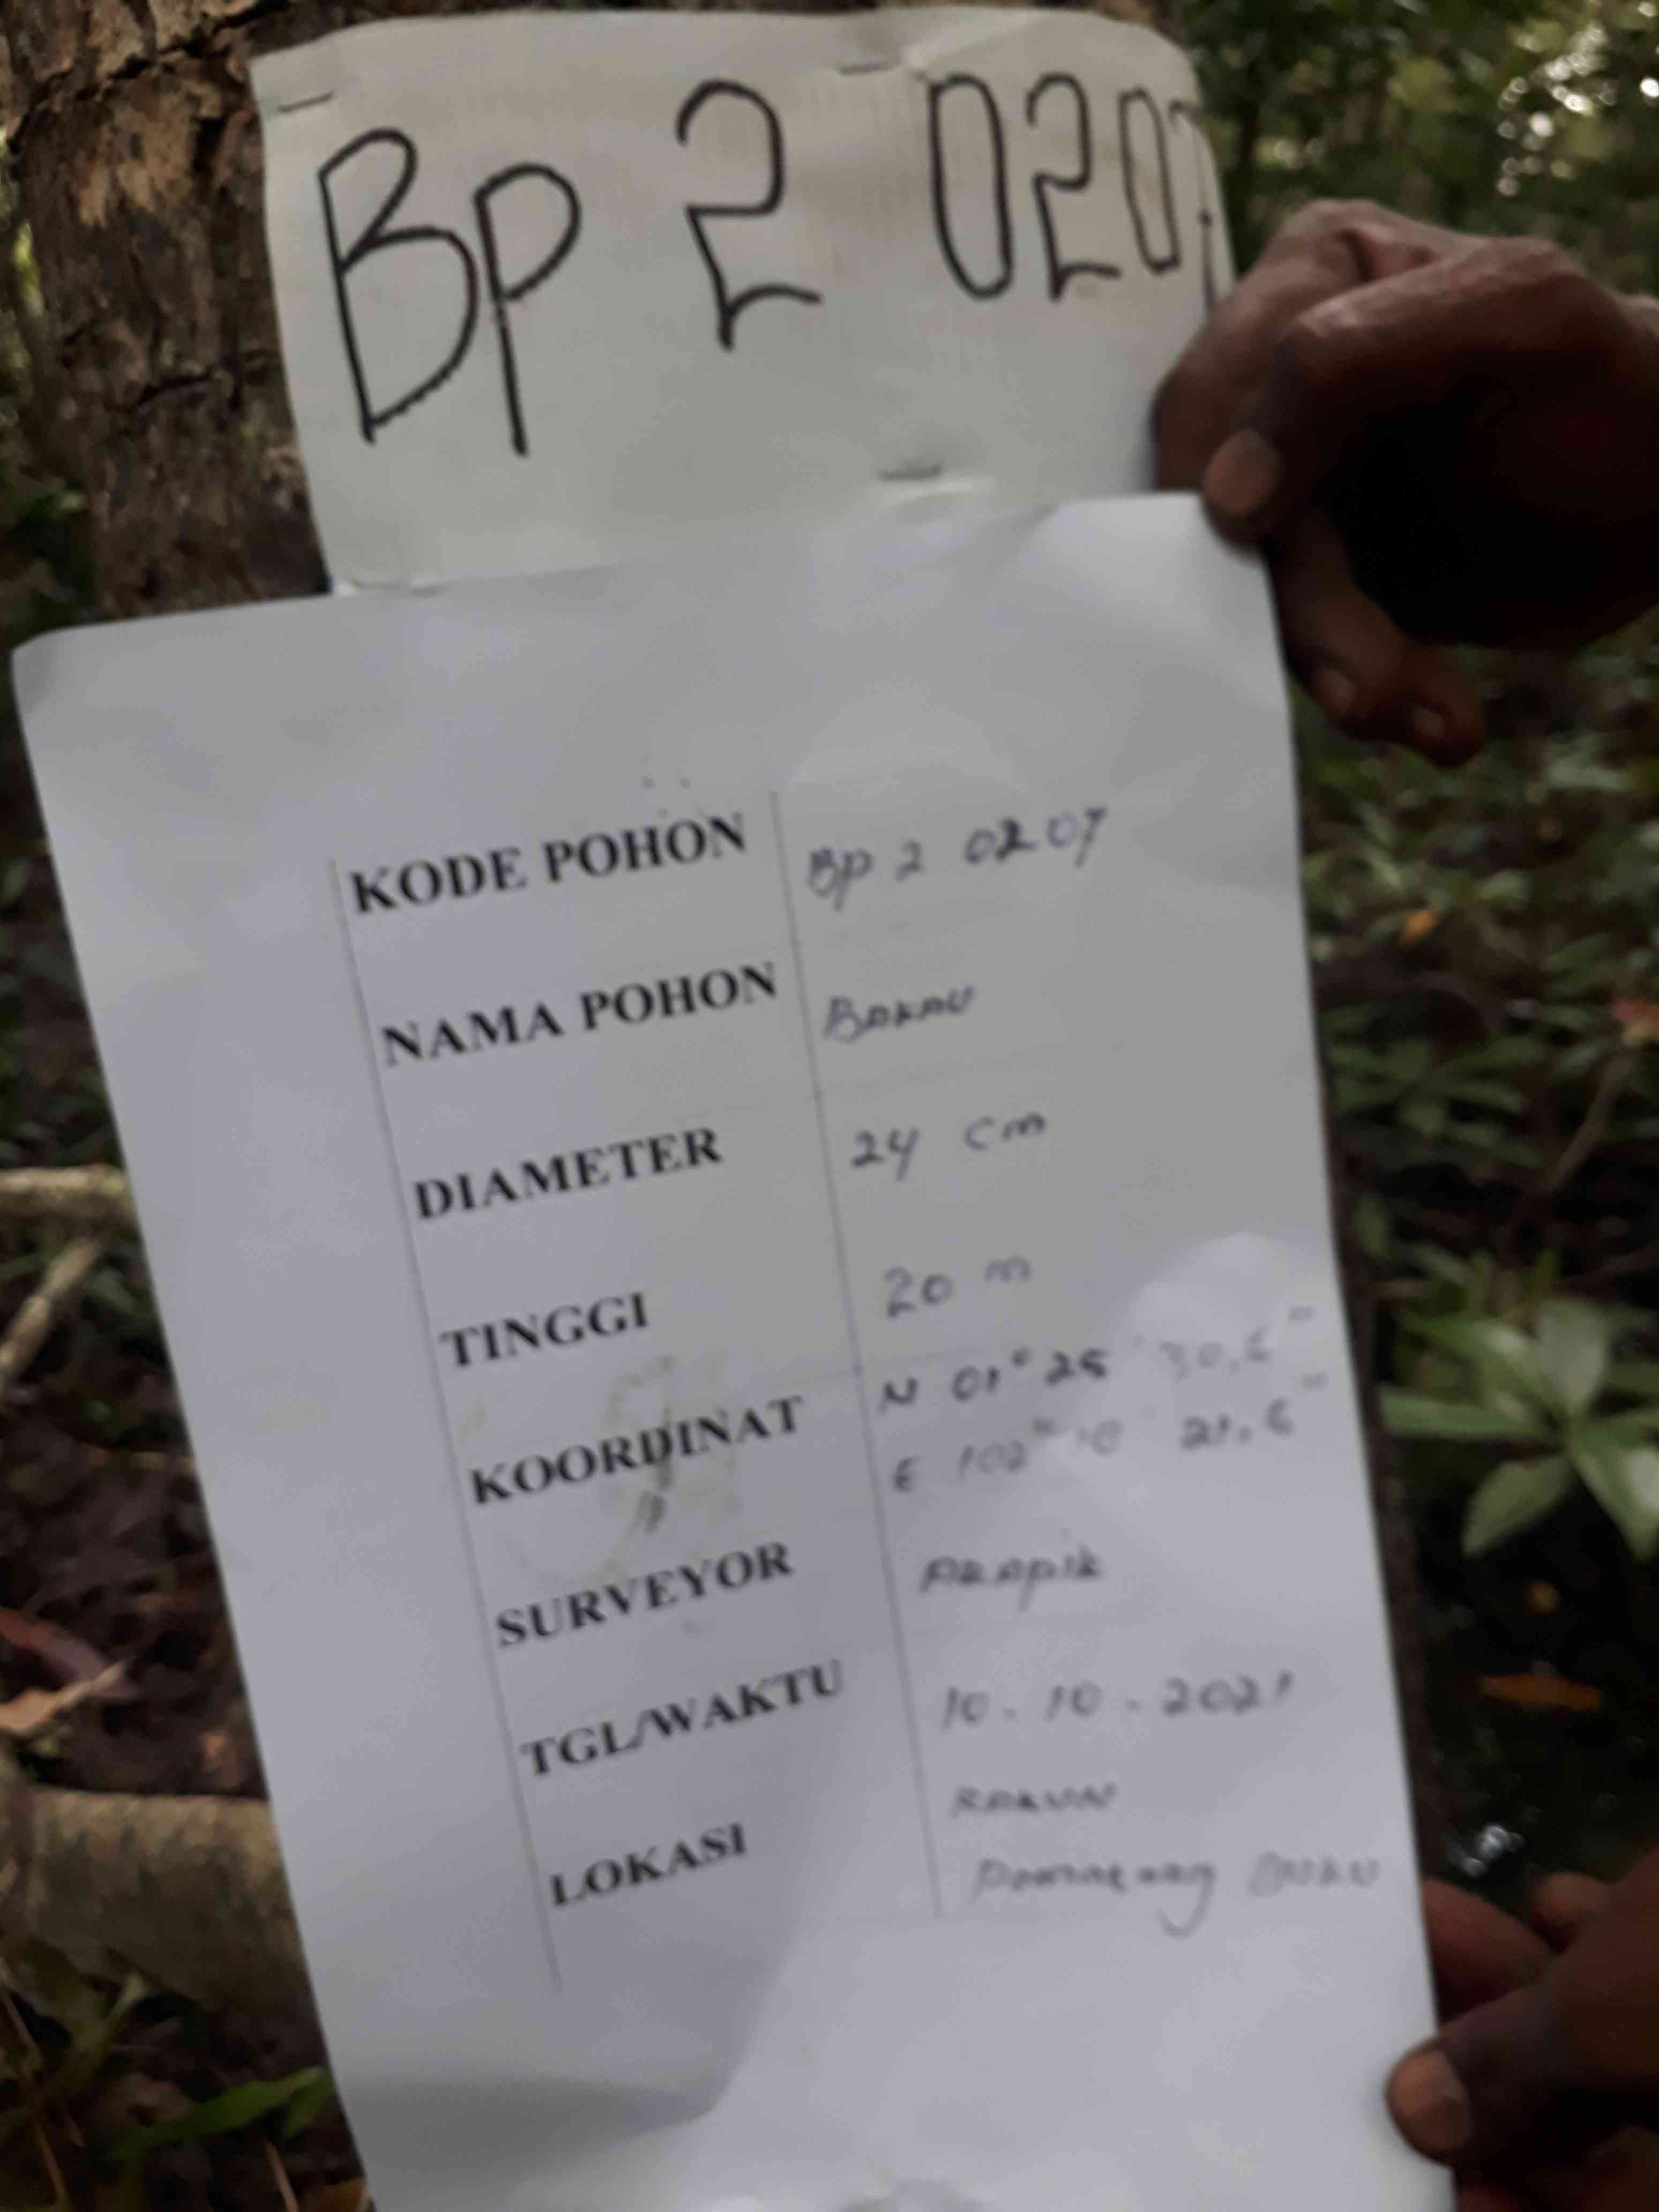 Bp 2 0207
KODE POHON Bp 2 0207
NAMA POHON BAKAU
DIAMETER 24 cm
TINGGI 20 m
KOORDINAT N 01° 25' 30.6"
E 102° 10' 21.6"
SURVEYOR
TGL/WAKTU 10.10.2021
LOKASI